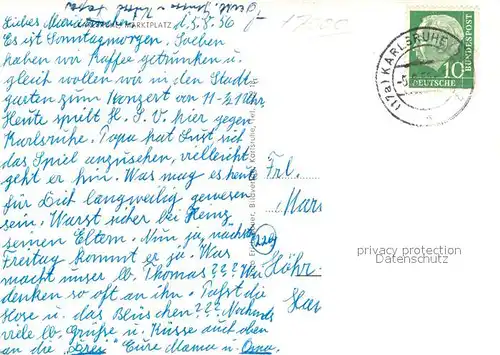 d. 5.8.56
Liebes Mariannchen
MARKTPLATZ
Es ist Sonntagmorgen. Soeben
haben wir Kaffee getrunken u.
gleich wollen wir in den Stadt
garten zum Konzert von 11-½1 Uhr
Heute spielt H.S.V. hier gegen
Karlsruhe. Papa hat Lust sich
das Spiel anzusehen, vielleicht
geht er hin. Was mag es heute
für Dich langweilig gewesen
sein. Warst sicher bei Heinz
seinen Eltern. Nun ja, nächsten
Freitag kommt er ja. Was
macht unser lb. Thomas??? Wir
denken so oft an ihn. Paßt die
Hose u. das Blüschen??? Nochmals
viele lb. Grüße u. Küsse auch oben
an die "Drei" Eure Mama u. Oma.
(17a) KARLSRUHE
DEUTSCHE
BUNDESPOST
10
Frl.
Mar
Höhr
privacy protection
watermark